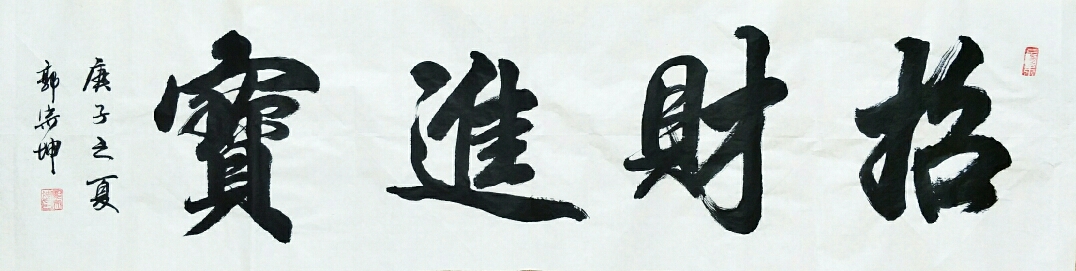 招財進寶
庚子之夏
郭宗坤